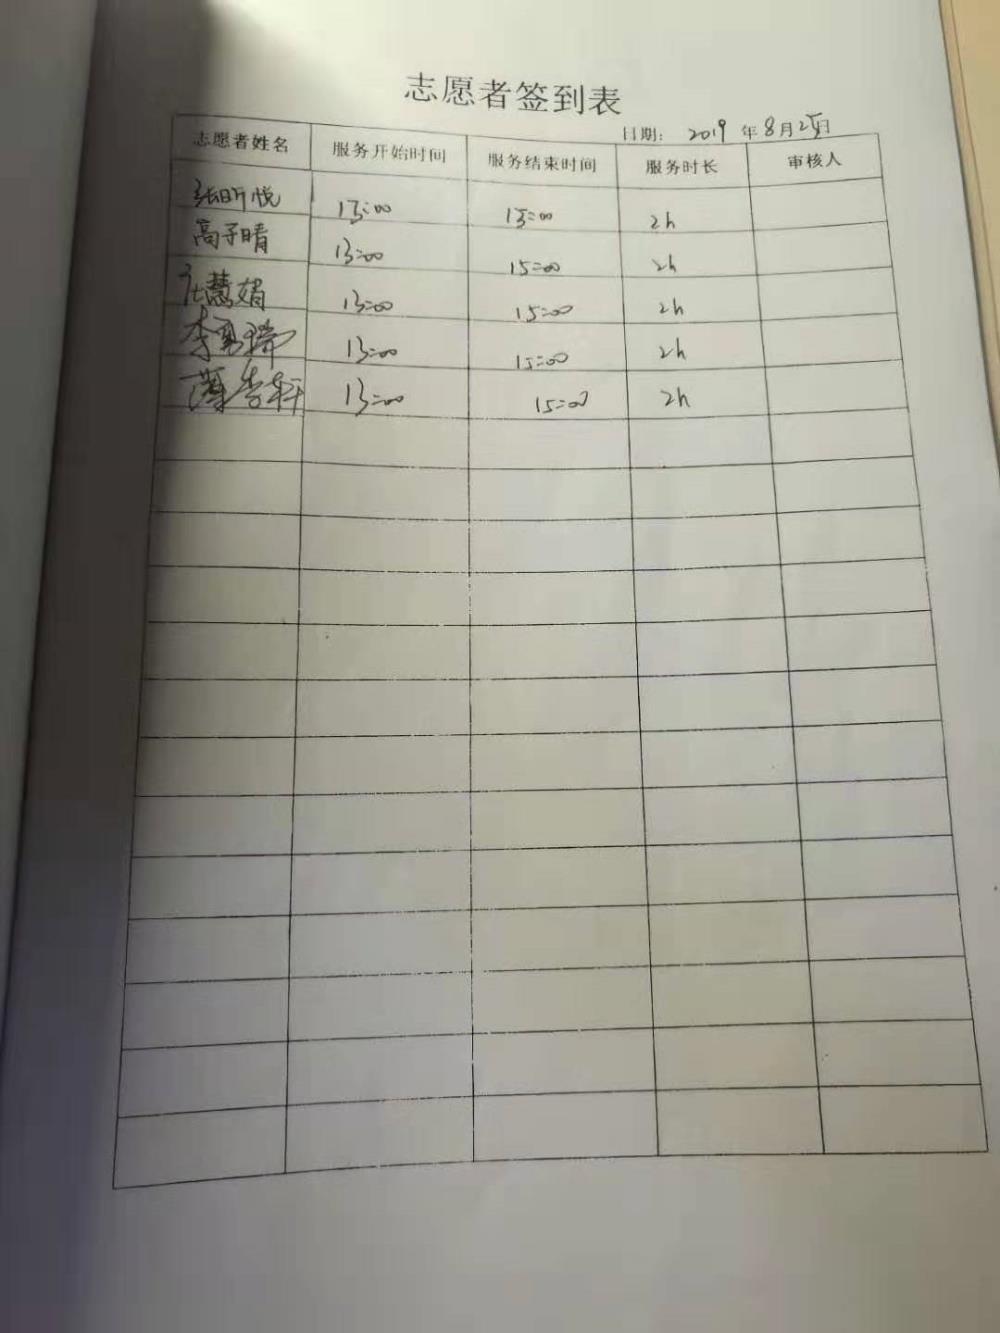 志愿者签到表
日期： 2019 年 8 月 25 日
志愿者姓名 服务开始时间 服务结束时间 服务时长 审核人
张昕悦 13:00 15:00 2h
高子晴 13:00 15:00 2h
张慧娟 13:00 15:00 2h
李 13:00 15:00 2h
轩 13:00 15:00 2h